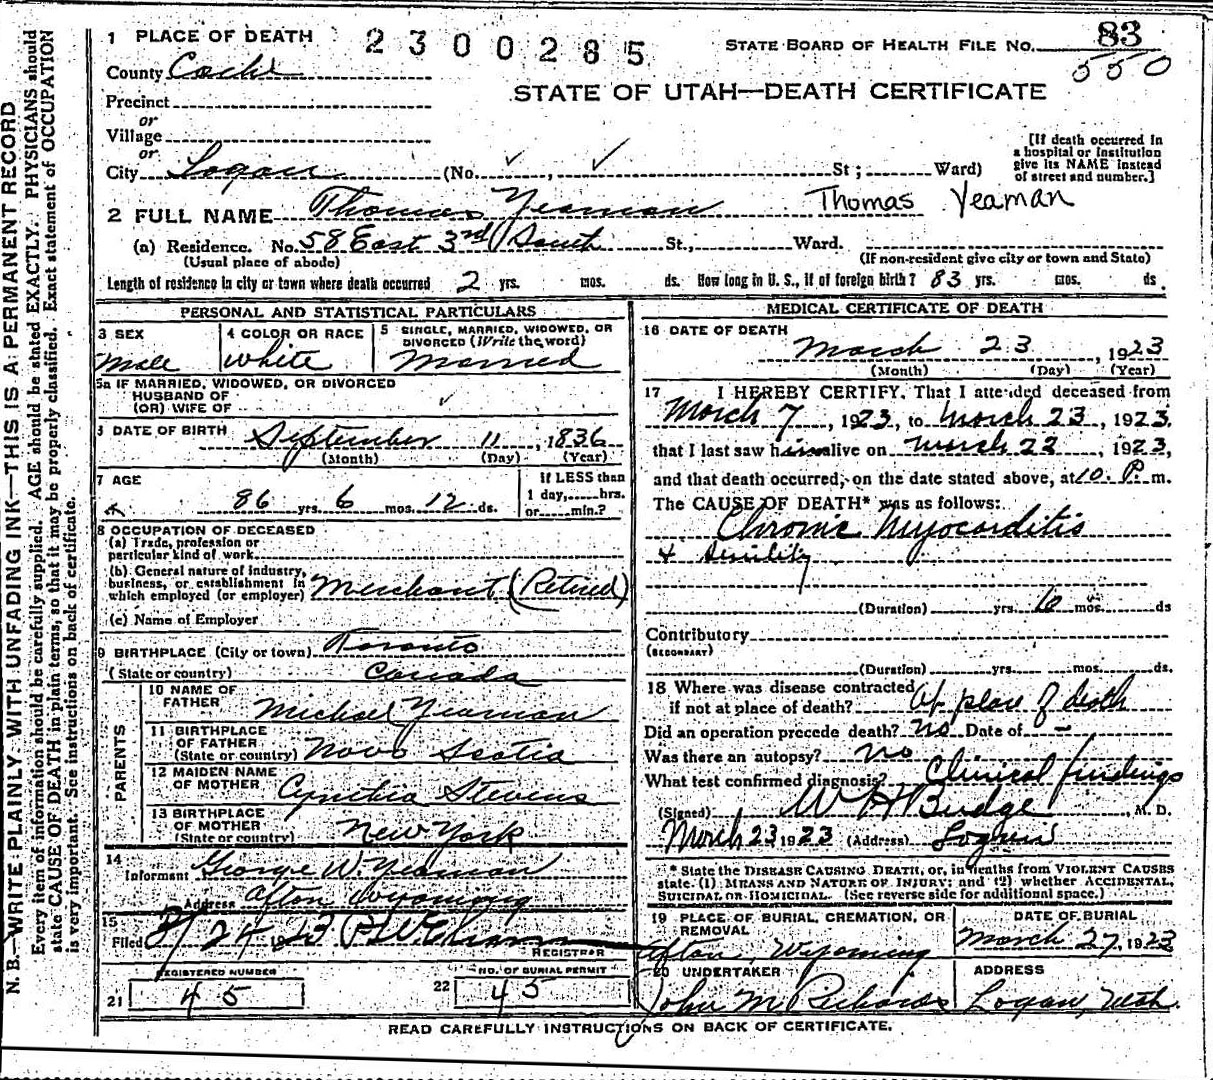 N.B.—WRITE PLAINLY WITH UNFADING INK—THIS IS A PERMANENT RECORD
Every item of information should be carefully supplied. AGE should be stated EXACTLY. PHYSICIANS should
state CAUSE OF DEATH in plain terms, so that it may be properly classified. Exact statement of OCCUPATION
is very important. See instructions on back of certificate.
1 PLACE OF DEATH 2300285 STATE BOARD OF HEALTH FILE NO. 83
County Cache 550
STATE OF UTAH—DEATH CERTIFICATE
Precinct
or
Village
or
City Logan (No. , St; Ward)
[If death occurred in
a hospital or institution
give its NAME instead
of street and number.]
2 FULL NAME Thomas Yeaman Thomas Yeaman
(a) Residence. No. 58 East 3rd South St., Ward.
(Usual place of abode) (If non-resident give city or town and State)
Length of residence in city or town where death occurred 2 yrs. mos. ds. How long in U. S., if of foreign birth? 83 yrs. mos. ds.
PERSONAL AND STATISTICAL PARTICULARS
3 SEX 4 COLOR OR RACE 5 SINGLE, MARRIED, WIDOWED, OR
DIVORCED (Write the word)
Male White Married
5a IF MARRIED, WIDOWED, OR DIVORCED
HUSBAND OF
(OR) WIFE OF
DATE OF BIRTH September 11, 1836
(Month) (Day) (Year)
7 AGE If LESS than
86 yrs. 6 mos. 12 ds. 1 day, hrs.
or min.?
8 OCCUPATION OF DECEASED
(a) Trade, profession or
particular kind of work
(b) General nature of industry,
business, or establishment in
which employed (or employer) Merchant (Retired)
(c) Name of Employer
9 BIRTHPLACE (City or town) Toronto
(State or country) Canada
PARENTS
10 NAME OF
FATHER Michael Yeaman
11 BIRTHPLACE
OF FATHER
(State or country) Nova Scotia
12 MAIDEN NAME
OF MOTHER Cynthia Stevens
13 BIRTHPLACE
OF MOTHER
(State or country) New York
14
Informant George W. Yeaman
Address Afton Wyoming
15
Filed 3/24 1923
REGISTRAR
REGISTERED NUMBER NO. OF BURIAL PERMIT
21 45 22 45
MEDICAL CERTIFICATE OF DEATH
16 DATE OF DEATH
March 23, 1923
(Month) (Day) (Year)
17 I HEREBY CERTIFY, That I attended deceased from
March 7, 1923, to March 23, 1923,
that I last saw him alive on March 22, 1923,
and that death occurred, on the date stated above, at 10 P. m.
The CAUSE OF DEATH* was as follows:
Chronic Myocarditis
+ Senility
(Duration) yrs. mos. ds
Contributory
(SECONDARY)
(Duration) yrs. mos. ds.
18 Where was disease contracted
if not at place of death? At place of death
Did an operation precede death? No Date of —
Was there an autopsy? No
What test confirmed diagnosis? Clinical findings
(Signed) W H Budge, M. D.
March 23 1923 (Address) Logan
* State the DISEASE CAUSING DEATH, or, in deaths from VIOLENT CAUSES
state (1) MEANS AND NATURE OF INJURY; and (2) whether ACCIDENTAL,
SUICIDAL OR HOMICIDAL. (See reverse side for additional space.)
19 PLACE OF BURIAL, CREMATION, OR
REMOVAL DATE OF BURIAL
Afton, Wyoming March 27, 1923
20 UNDERTAKER ADDRESS
John M Richards Logan, Utah.
READ CAREFULLY INSTRUCTIONS ON BACK OF CERTIFICATE.